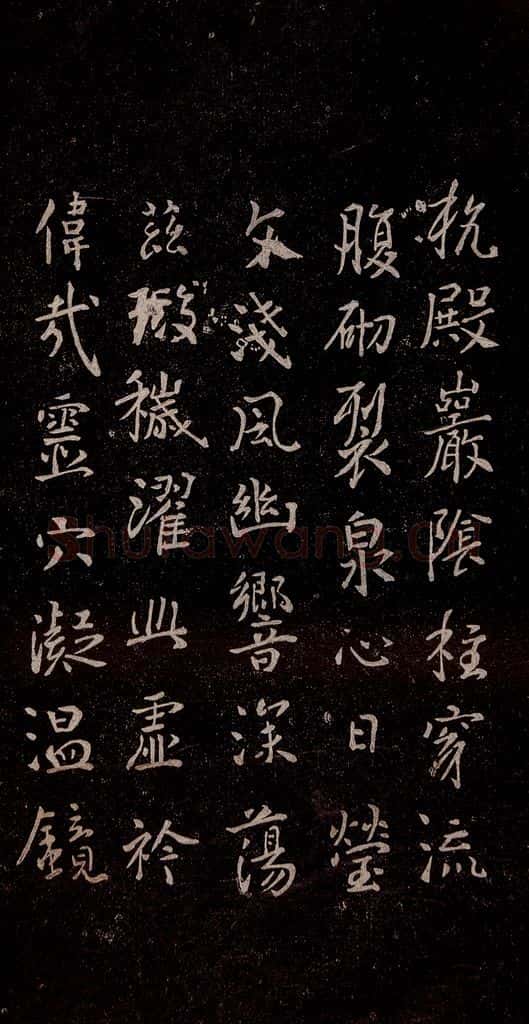 枕殿巖隈柱穿流
腹砌裂泉心日瑩
文淺風幽響深蕩
茲瑕穢濯此虛衿
偉哉靈穴凝温鏡
Shufawang.cn